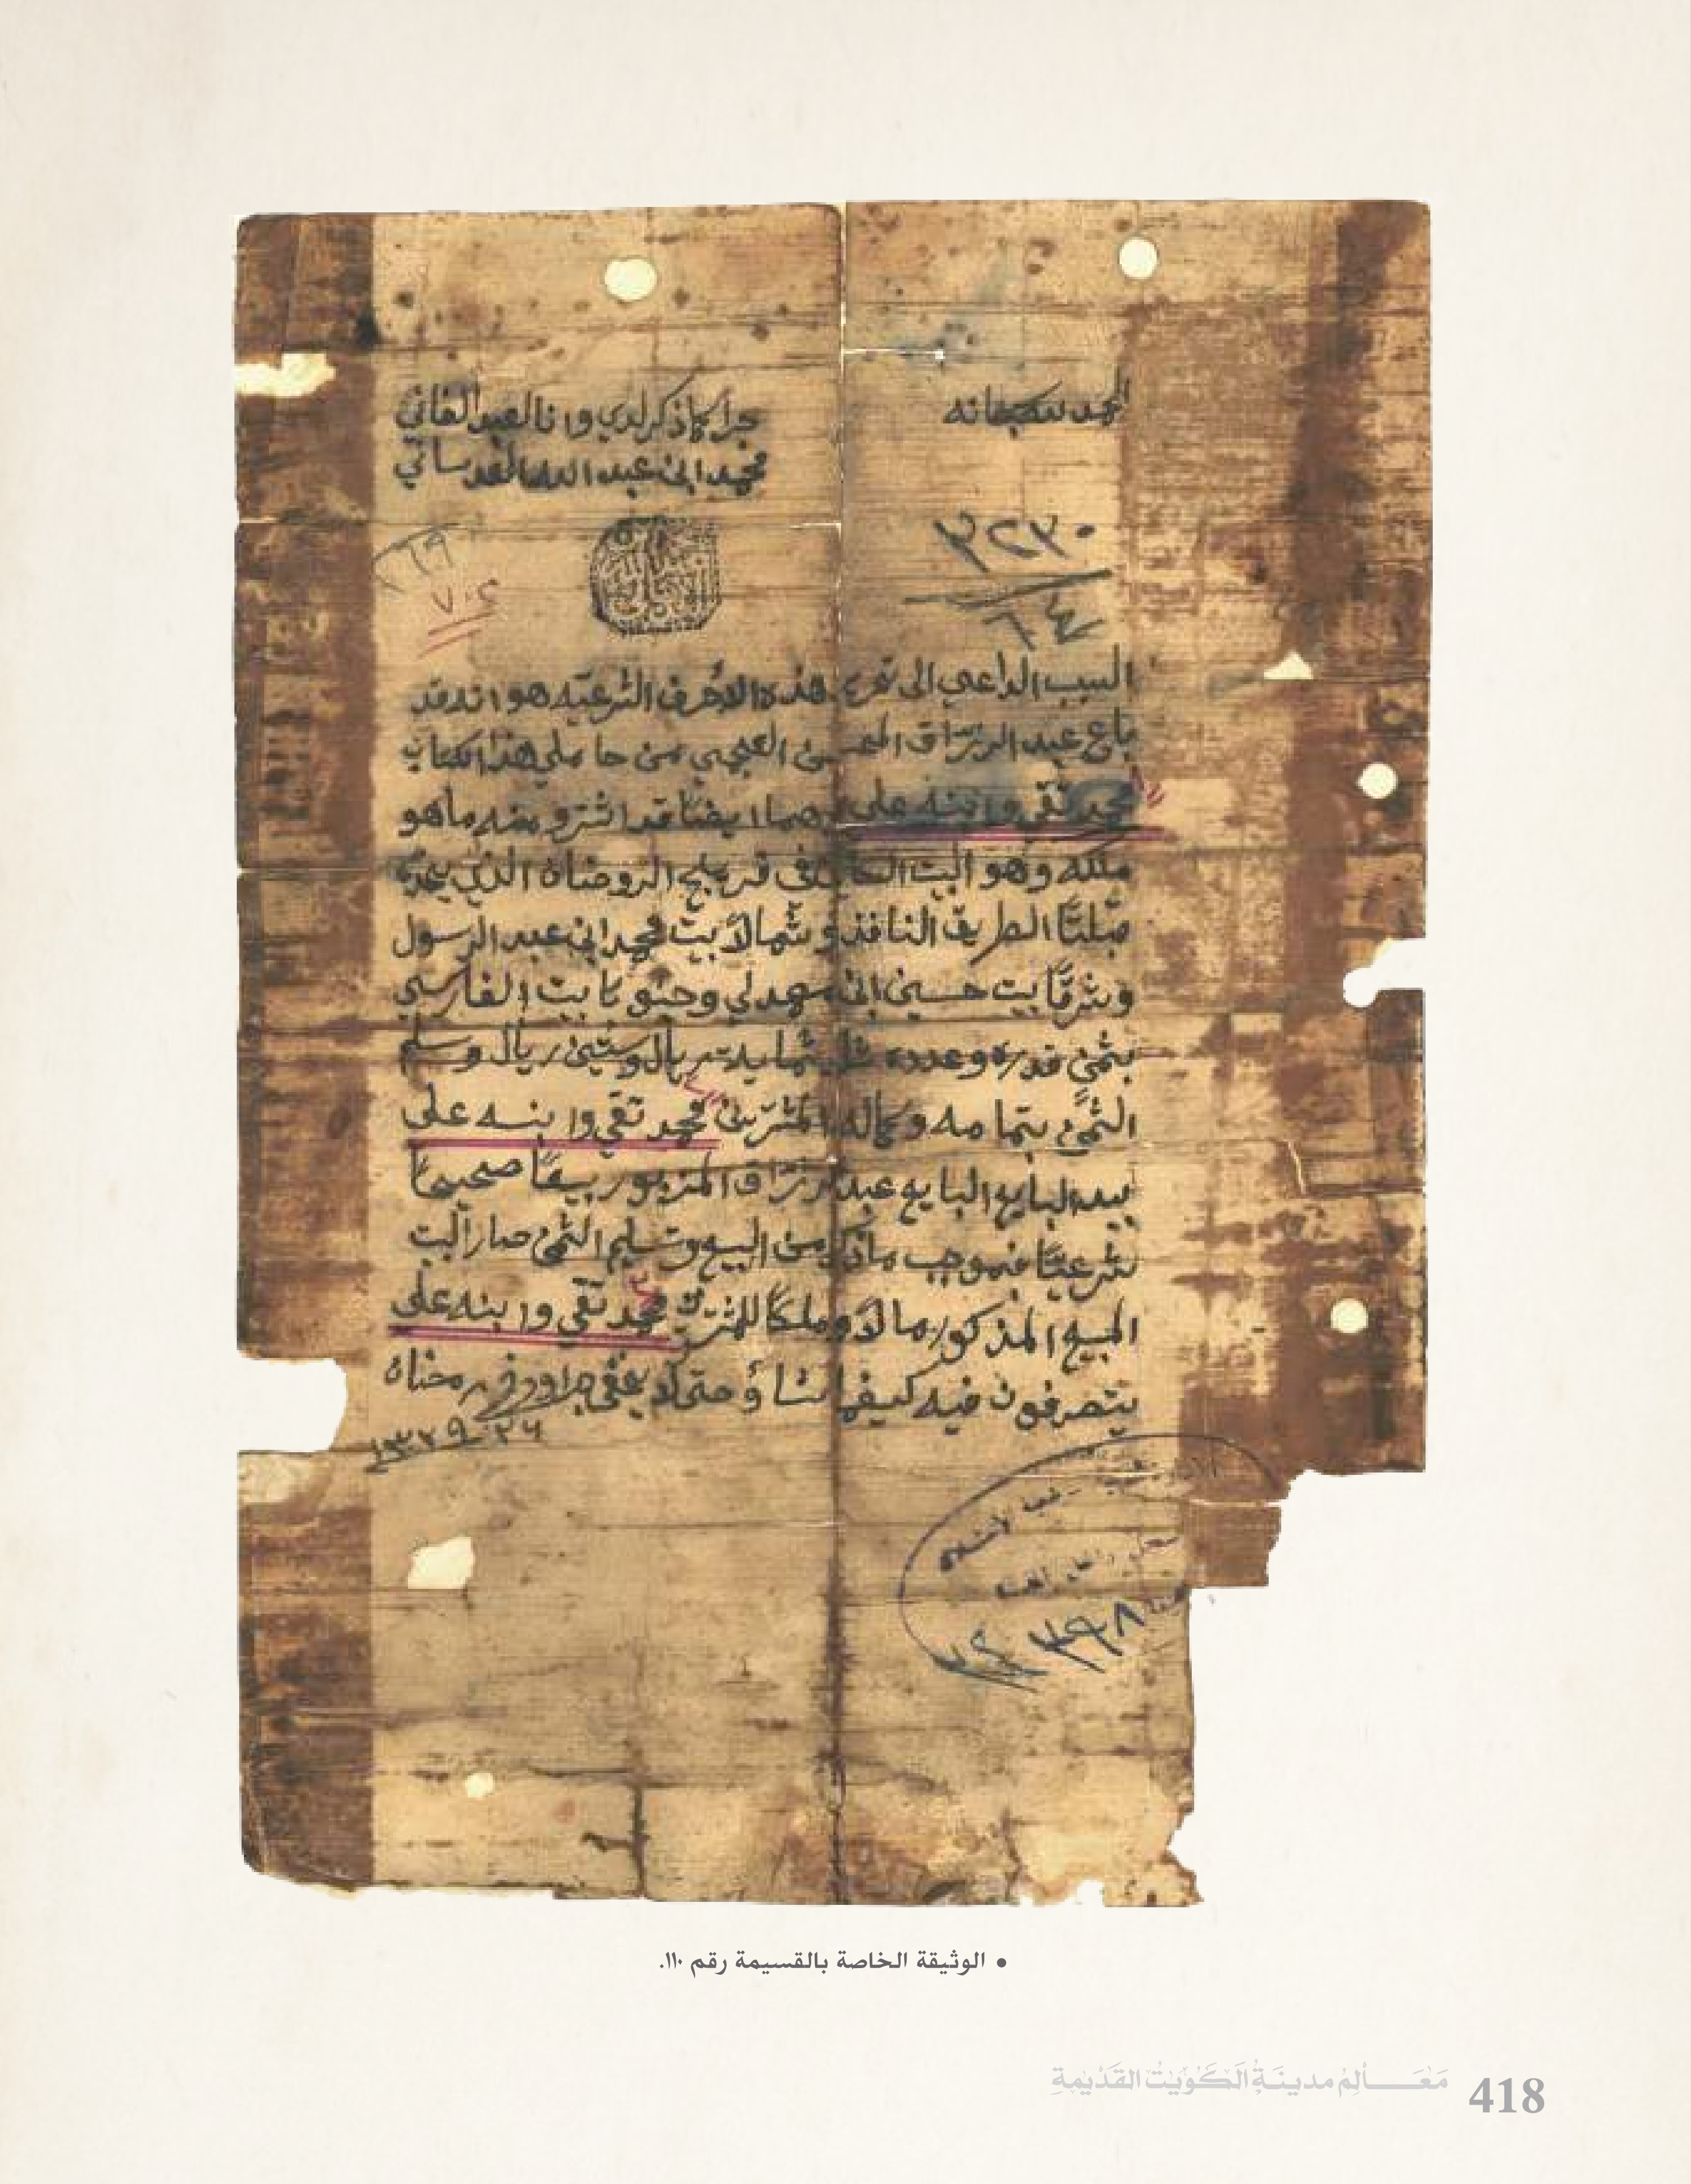 الحمد لله سبحانه
جرا كما ذكر لدي وانا العبد الفاني
محمد ابن عبد الله العدساني
٣٢٣٠
٦٤
١٦٩
٧٠٢
السبب الداعي الى تحرير هذه الاحرف الشرعيّه هو انه قد
باع عبد الرزّاق المحسن العجمي من حاملي هذا الكتاب
محمد تقي وابنه علي وهما ايضًا قد اشترو منه ماهو
ملكه وهو البيت الكاين في قريب الروضاه الذي يحدّه
قبلتًا الطريق النافذ وشمالاً بيت محمد ابن عبد الرسول
وشرقًا بيت حسين ابن مهدلي وجنوبًا بيت الفارسي
بثمنٍ قدره وعدده ثلاثمايه ريال وستّين ريال وسلم
الثمن بتمامه وكماله المشترين محمد تقي وابنه علي
بيد البايع البايع عبد الرزّاق المزبور بيعًا صحيحًا
شرعيًا فبموجب ماذكر من البيع وتسليم الثمن صار البيت
المبيع المذكور مالاً وملكًا للمشترين محمد تقي وابنه علي
يتصرفون فيه كيفما شاؤ حتى لا يخفى جرا ورخ في رمضاه
٢٦ ١٣٢٩
٣٩٨
• الوثيقة الخاصة بالقسيمة رقم ١١٠.
مَعَالِمُ مدينَةِ الكُوَيْتِ القَدِيمَةِ 418